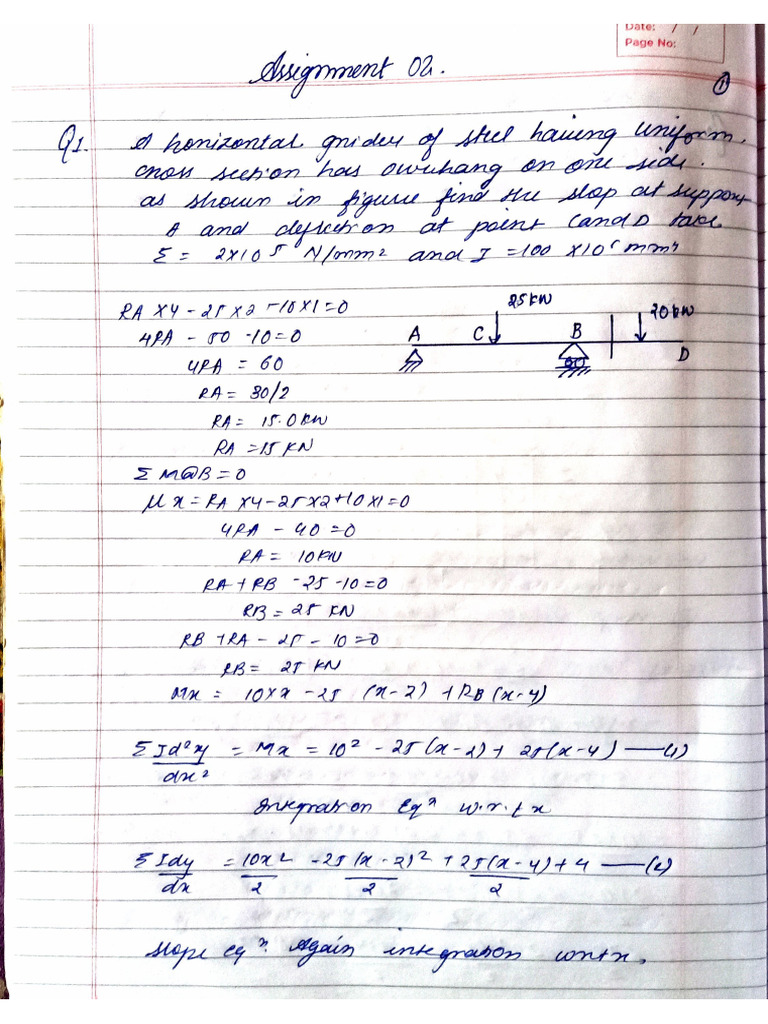 Date: / /
Page No:
Assignment 02.
1
Q1. A horizontal grider of steel having uniform,
cross section has overhang on one side.
as shown in figure find the slop at support
A and deflection at point C and D take
E = 2×10⁵ N/mm² and I = 100 ×10⁶ mm⁴
RA ×4 - 25×2 - 10×1=0
4RA - 50 -10=0
4RA = 60
RA = 30/2
RA = 15.0 KN
RA = 15 KN
25 KN
A C B D
Σ M@B = 0
Mx = RA ×4 - 25×2+10×1=0
4RA - 40 = 0
RA = 10KN
RA + RB - 25 - 10 = 0
RB = 25 KN
RB + RA - 25 - 10 = 0
RB = 25 KN
Mx = 10×x - 25 (x-2) + RB (x-4)
ΣId²y/dx² = Mx = 10² - 25(x-2) + 25(x-4) — (1)
Integration Eqⁿ w.r.t x
ΣIdy/dx = 10x²/2 - 25(x-2)²/2 + 25(x-4)/2 + 4 — (2)
slope eqⁿ. Again integration w.r.t x.